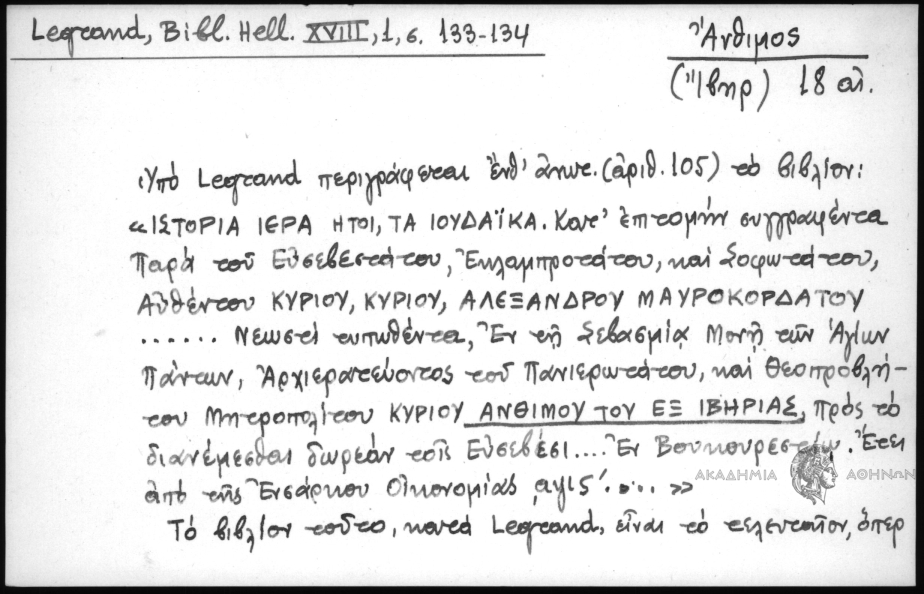 Legrand, Bibl. Hell. XVIII, 1, σ. 133-134
Ἄνθιμος
(Ἴβηρ) 18 αἰ.
Ὑπό Legrand περιγράφεται ἔνθ' ἀνωτ. (ἀριθ. 105) τό βιβλίον:
«ΙΣΤΟΡΙΑ ΙΕΡΑ ΗΤΟΙ, ΤΑ ΙΟΥΔΑΪΚΑ. Κατ' ἐπιτομήν συγγραφέντα
Παρά τοῦ Εὐσεβεστάτου, Ἐκλαμπροτάτου, καί Σοφωτάτου,
Αὐθέντου ΚΥΡΙΟΥ, ΚΥΡΙΟΥ, ΑΛΕΞΑΝΔΡΟΥ ΜΑΥΡΟΚΟΡΔΑΤΟΥ
...... Νεωστί τυπωθέντα, Ἐν τῇ Σεβασμίᾳ Μονῇ τῶν Ἁγίων
Πάντων, Ἀρχιερατεύοντος τοῦ Πανιερωτάτου, καί Θεοπροβλή-
του Μητροπολίτου ΚΥΡΙΟΥ ΑΝΘΙΜΟΥ ΤΟΥ ΕΞ ΙΒΗΡΙΑΣ, πρός τό
διανέμεσθαι δωρεάν τοῖς Εὐσεβέσι.... Ἐν Βουκουρεστίῳ. Ἔτει
ἀπό τῆς Ἐνσάρκου Οἰκονομίας ͵αψις'..... »
Τό βιβλίον τοῦτο, κατά Legrand, εἶναι τό τελευταῖον, ὅπερ
ΑΚΑΔΗΜΙΑ ΑΘΗΝΩΝ